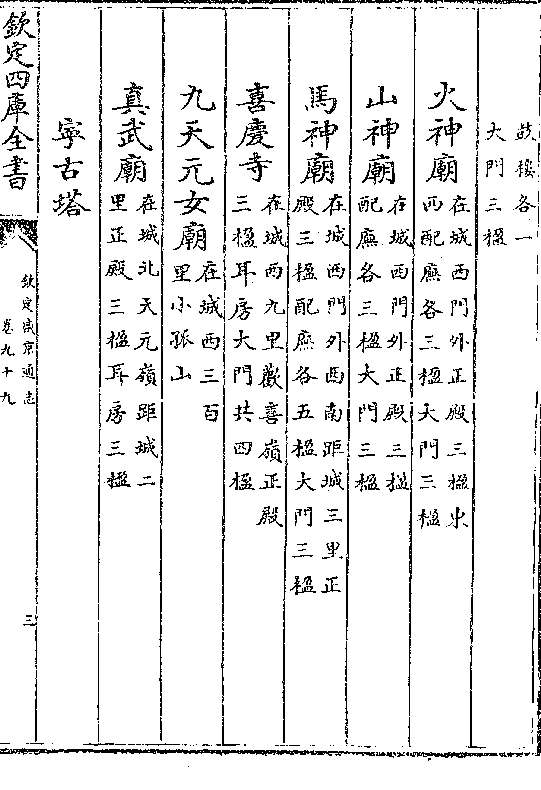 鼓樓各一
大門三楹
火神廟在城西門外正殿三楹東
西配廡各三楹大門三楹
山神廟在城西門外正殿三楹
配廡各三楹大門三楹
馬神廟在城西門外西南距城三里正
殿三楹配廡各五楹大門三楹
喜慶寺在城西九里歡喜嶺正殿
三楹耳房大門共四楹
九天元女廟在城西三百
里小孤山
真武廟在城北天元嶺距城二
里正殿三楹耳房三楹
寧古塔
欽定四庫全書
欽定盛京通志
卷九十九
三